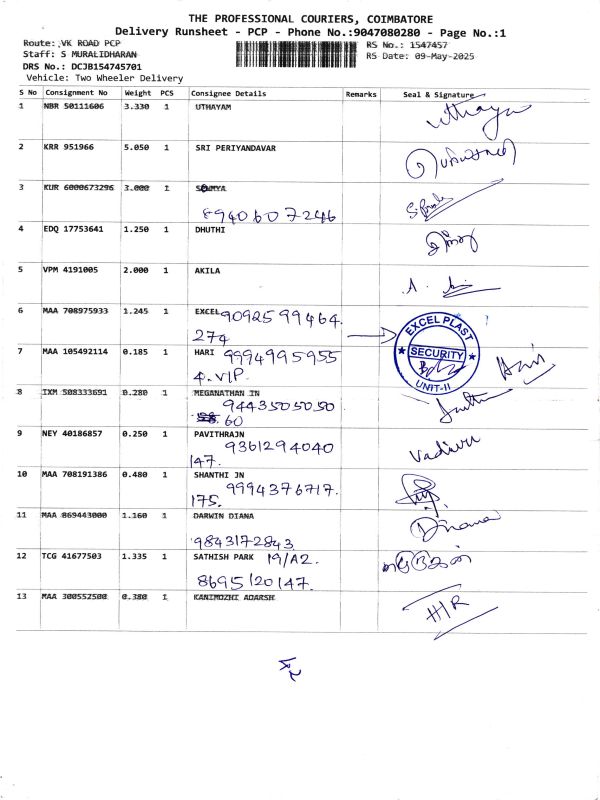 THE PROFESSIONAL COURIERS, COIMBATORE
Delivery Runsheet - PCP - Phone No.:9047080280 - Page No.:1
Route: VK ROAD PCP
RS No.: 1547457
Staff: S MURALIDHARAN
RS Date: 09-May-2025
DRS No.: DCJB154745701
Vehicle: Two Wheeler Delivery
S No Consignment No Weight PCS Consignee Details Remarks Seal & Signature
1 NBR 50111606 3.330 1 UTHAYAM uthaya
2 KRR 951966 5.050 1 SRI PERIYANDAVAR
3 KUR 6000673296 3.000 1 SOUMYA
8940607246
4 EDQ 17753641 1.250 1 DHUTHI
5 VPM 4191005 2.000 1 AKILA
6 MAA 708975933 1.245 1 EXCEL 9092599464.
274
EXCEL PLAST
SECURITY
UNIT-II
7 MAA 105492114 0.185 1 HARI 9994995955 Hari
4. VIP
8 IXM 508333691 0.280 1 MEGANATHAN IN
9443505050
60
9 NEY 40186857 0.250 1 PAVITHRAJN Vadivu
9361294040
147.
10 MAA 708191386 0.480 1 SHANTHI JN
9994376717.
175.
11 MAA 869443000 1.160 1 DARWIN DIANA Diana
9843172843
12 TCG 41677503 1.335 1 SATHISH PARK 19/A2.
8695120147.
13 MAA 300552500 0.380 1 KANIMOZHI ADARSH H/R